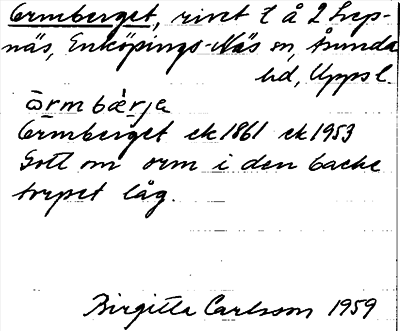 Ormberget, rivet t å 2 Trep-
näs, Enköpings-Näs sn, Åsunda
hd, Upps l.
òrmbæ̀rje
Ormberget ek 1861 ek 1953
Gott om orm i den backe
torpet låg.
Birgitta Carlsson 1959